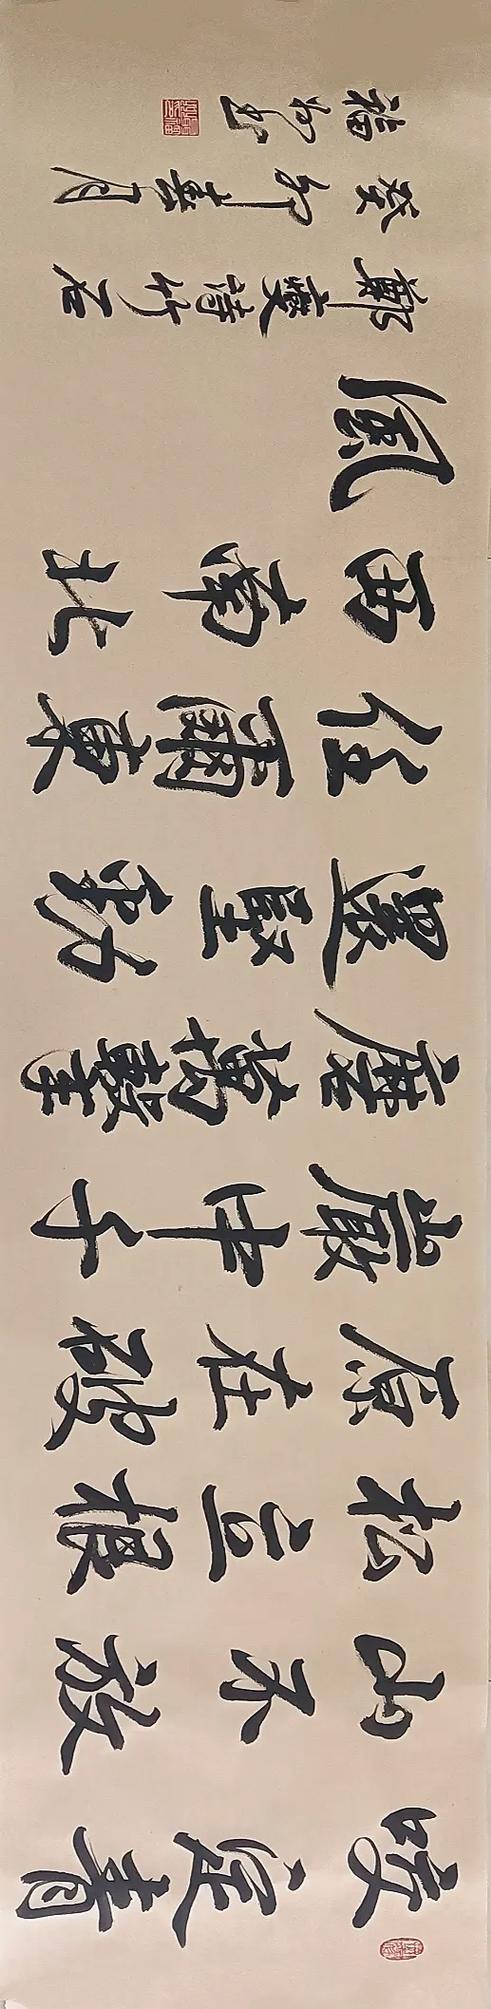 咬定青
山不放
松立根
原在破
巖中千
磨萬擊
還堅勁
任爾東
西南北
風
鄭燮詩竹石
癸卯春月
福書